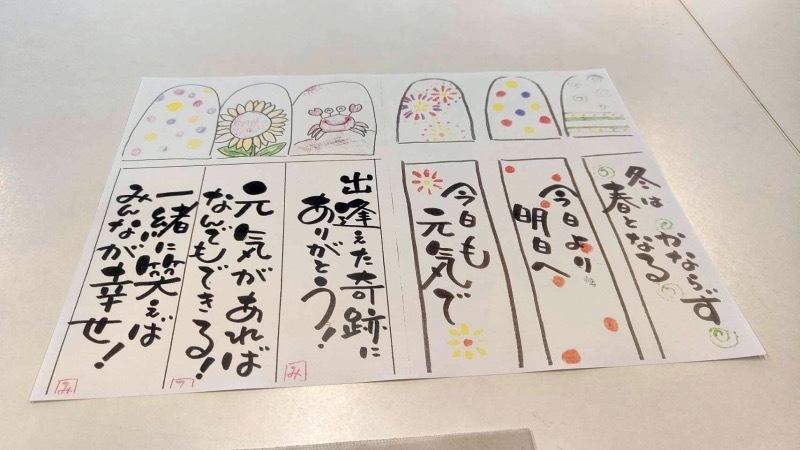 冬は かならず
春となる
今日より
明日へ
今日も
元気で
出逢えた奇跡に
ありがとう!
元気があれば
なんでもできる!
一緒に笑えば
みんなが幸せ!
み
ラ
み